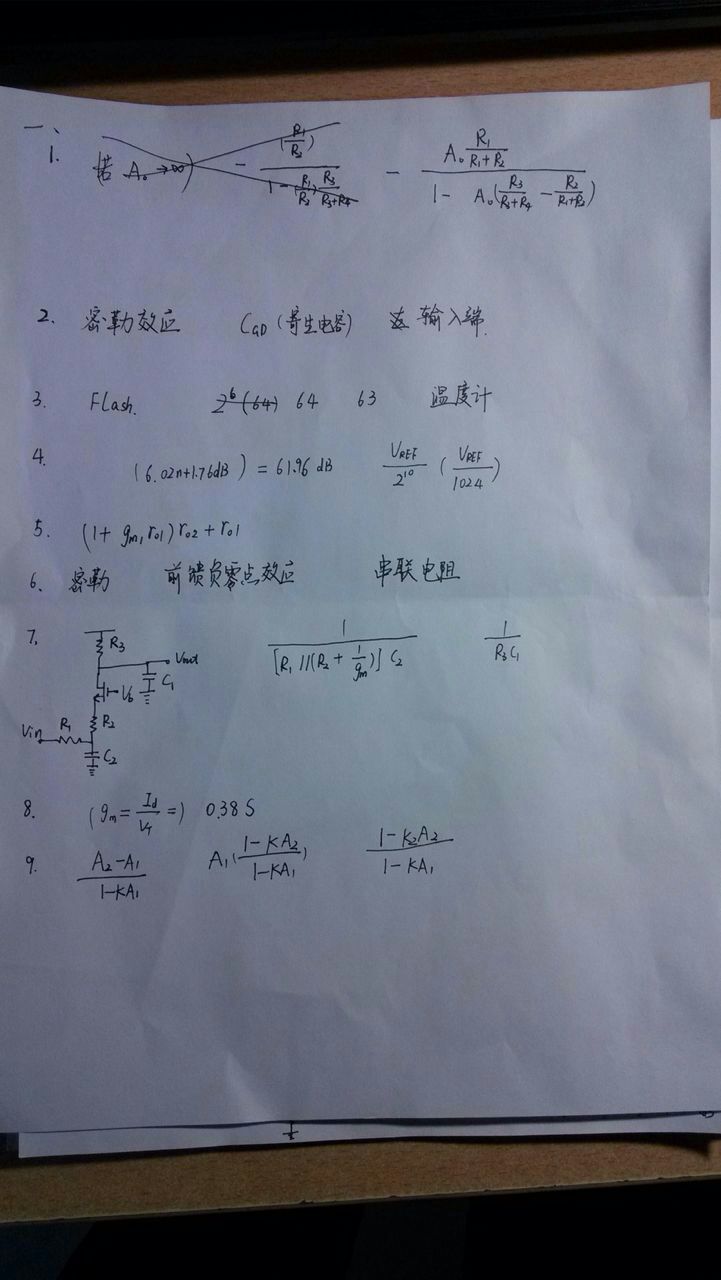 一、
1. (若 A₀→∞) - (R₁/R₂) / (1 - (R₁/R₂) R₃/(R₃+R₄)) - A₀ R₁/(R₁+R₂) / (1 - A₀(R₃/(R₃+R₄) - R₂/(R₁+R₂)))
2. 密勒效应 CGD (寄生电容) 输入端.
3. Flash. 2⁶(64) 64 63 温度计
4. (6.02n+1.76dB) = 61.96 dB VREF/2¹⁰ (VREF/1024)
5. (1+ gm₁ro1) ro2 + ro1
6、 密勒 前馈负零点效应 串联电阻
7、 R₃ Vout C₁ Vb R₂ R₁ Vin C₂ 1/([R₁//(R₂+1/gm)] C₂) 1/(R₃C₁)
8. (gm = Id/VT =) 0.38 S
9. (A₂-A₁)/(1-KA₁) A₁((1-KA₂)/(1-KA₁)) (1-K₂A₂)/(1-KA₁)